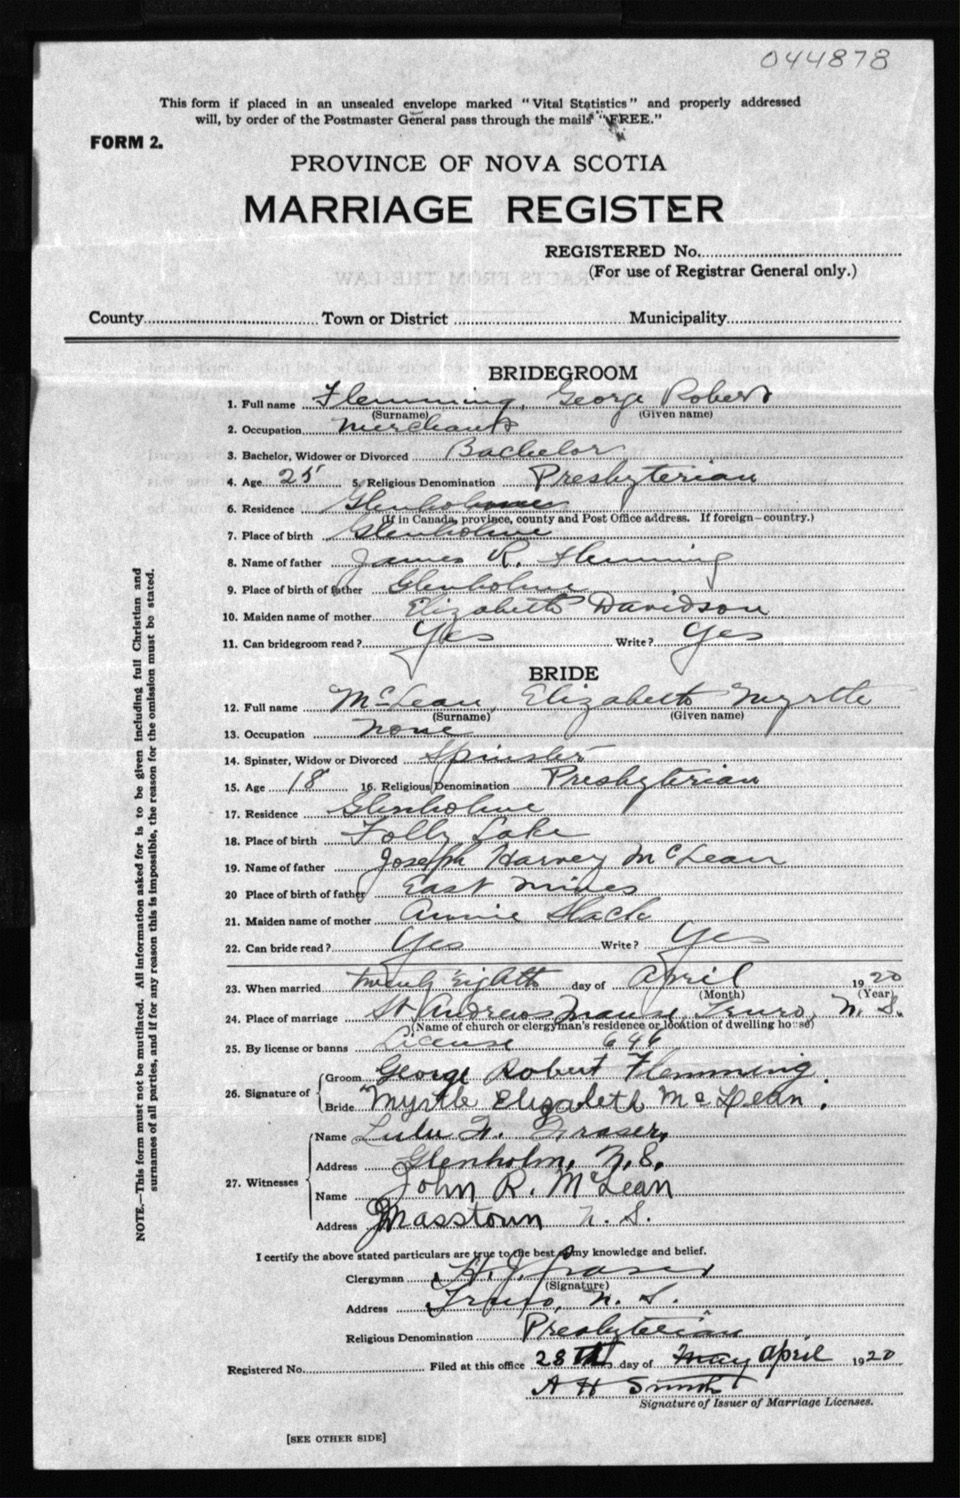 044878
This form if placed in an unsealed envelope marked "Vital Statistics" and properly addressed
will, by order of the Postmaster General pass through the mails "FREE."
FORM 2.
PROVINCE OF NOVA SCOTIA
MARRIAGE REGISTER
REGISTERED No.
(For use of Registrar General only.)
County Town or District Municipality
BRIDEGROOM
1. Full name Flemming, George Robert
(Surname) (Given name)
2. Occupation Merchant
3. Bachelor, Widower or Divorced Bachelor
4. Age 25 5. Religious Denomination Presbyterian
6. Residence Glenholme
(If in Canada, province, county and Post Office address. If foreign—country.)
7. Place of birth Glenholme
8. Name of father James R. Flemming
9. Place of birth of father Glenholme
10. Maiden name of mother Elizabeth Davidson
11. Can bridegroom read? Yes Write? Yes
BRIDE
12. Full name McLean, Elizabeth Myrtle
(Surname) (Given name)
13. Occupation None
14. Spinster, Widow or Divorced Spinster
15. Age 18 16. Religious Denomination Presbyterian
17. Residence Glenholme
18. Place of birth Folly Lake
19. Name of father Joseph Harvey McLean
20 Place of birth of father East Mines
21. Maiden name of mother Annie Slack
22. Can bride read? Yes Write? Yes
23. When married twenty Eighth day of April 1920
(Month) (Year)
24. Place of marriage St. Andrews Manse, Truro, N. S.
(Name of church or clergyman's residence or location of dwelling house)
25. By license or banns License 646
26. Signature of Groom George Robert Flemming.
Bride Myrtle Elizabeth McLean.
27. Witnesses Name Lulu F. Fraser,
Address Glenholm, N.S.
Name John R. McLean
Address Masstown N. S.
I certify the above stated particulars are true to the best of my knowledge and belief.
Clergyman H. J. Fraser
(Signature)
Address Truro, N. S.
Religious Denomination Presbyterian
Registered No. Filed at this office 28th day of May April 1920
A H Smith
Signature of Issuer of Marriage Licenses.
[SEE OTHER SIDE]
NOTE.—This form must not be mutilated. All information asked for is to be given including full Christian and
surnames of all parties, and if for any reason this is impossible, the reason for the omission must be stated.